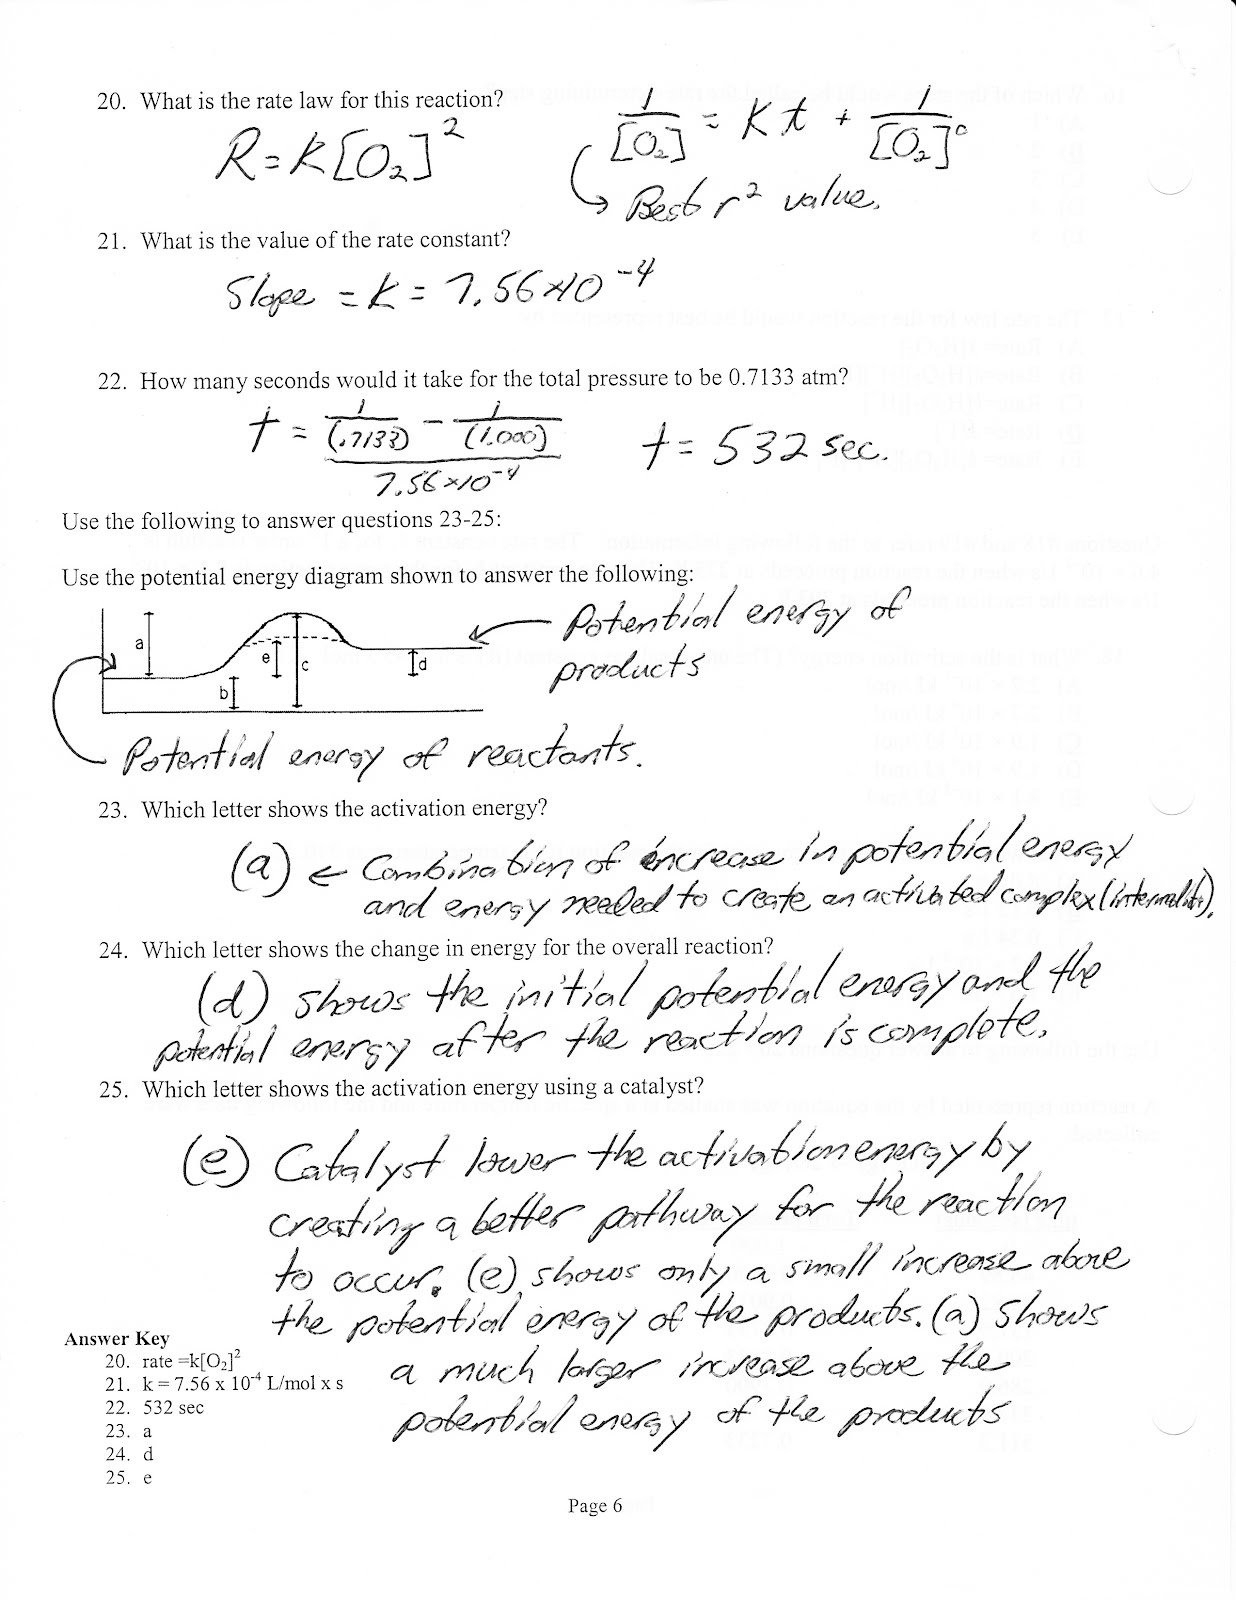 20. What is the rate law for this reaction?
R = k[O₂]²
1/[O₂] = kt + 1/[O₂]°
Best r² value.
21. What is the value of the rate constant?
Slope = k = 7.56x10⁻⁴
22. How many seconds would it take for the total pressure to be 0.7133 atm?
t = 1/(.7133) - 1/(1.000)
7.56x10⁻⁴
t = 532 sec.
Use the following to answer questions 23-25:
Use the potential energy diagram shown to answer the following:
Potential energy of
products
a
e
c
d
b
Potential energy of reactants.
23. Which letter shows the activation energy?
(a) ← Combination of increase in potential energy
and energy needed to create an activated complex
24. Which letter shows the change in energy for the overall reaction?
(d) shows the initial potential energy and the
potential energy after the reaction is complete.
25. Which letter shows the activation energy using a catalyst?
(e) Catalyst lower the activation energy by
creating a better pathway for the reaction
to occur. (e) shows only a small increase above
the potential energy of the products. (a) shows
a much larger increase above the
potential energy of the products
Answer Key
20. rate =k[O₂]²
21. k = 7.56 x 10⁻⁴ L/mol x s
22. 532 sec
23. a
24. d
25. e
Page 6